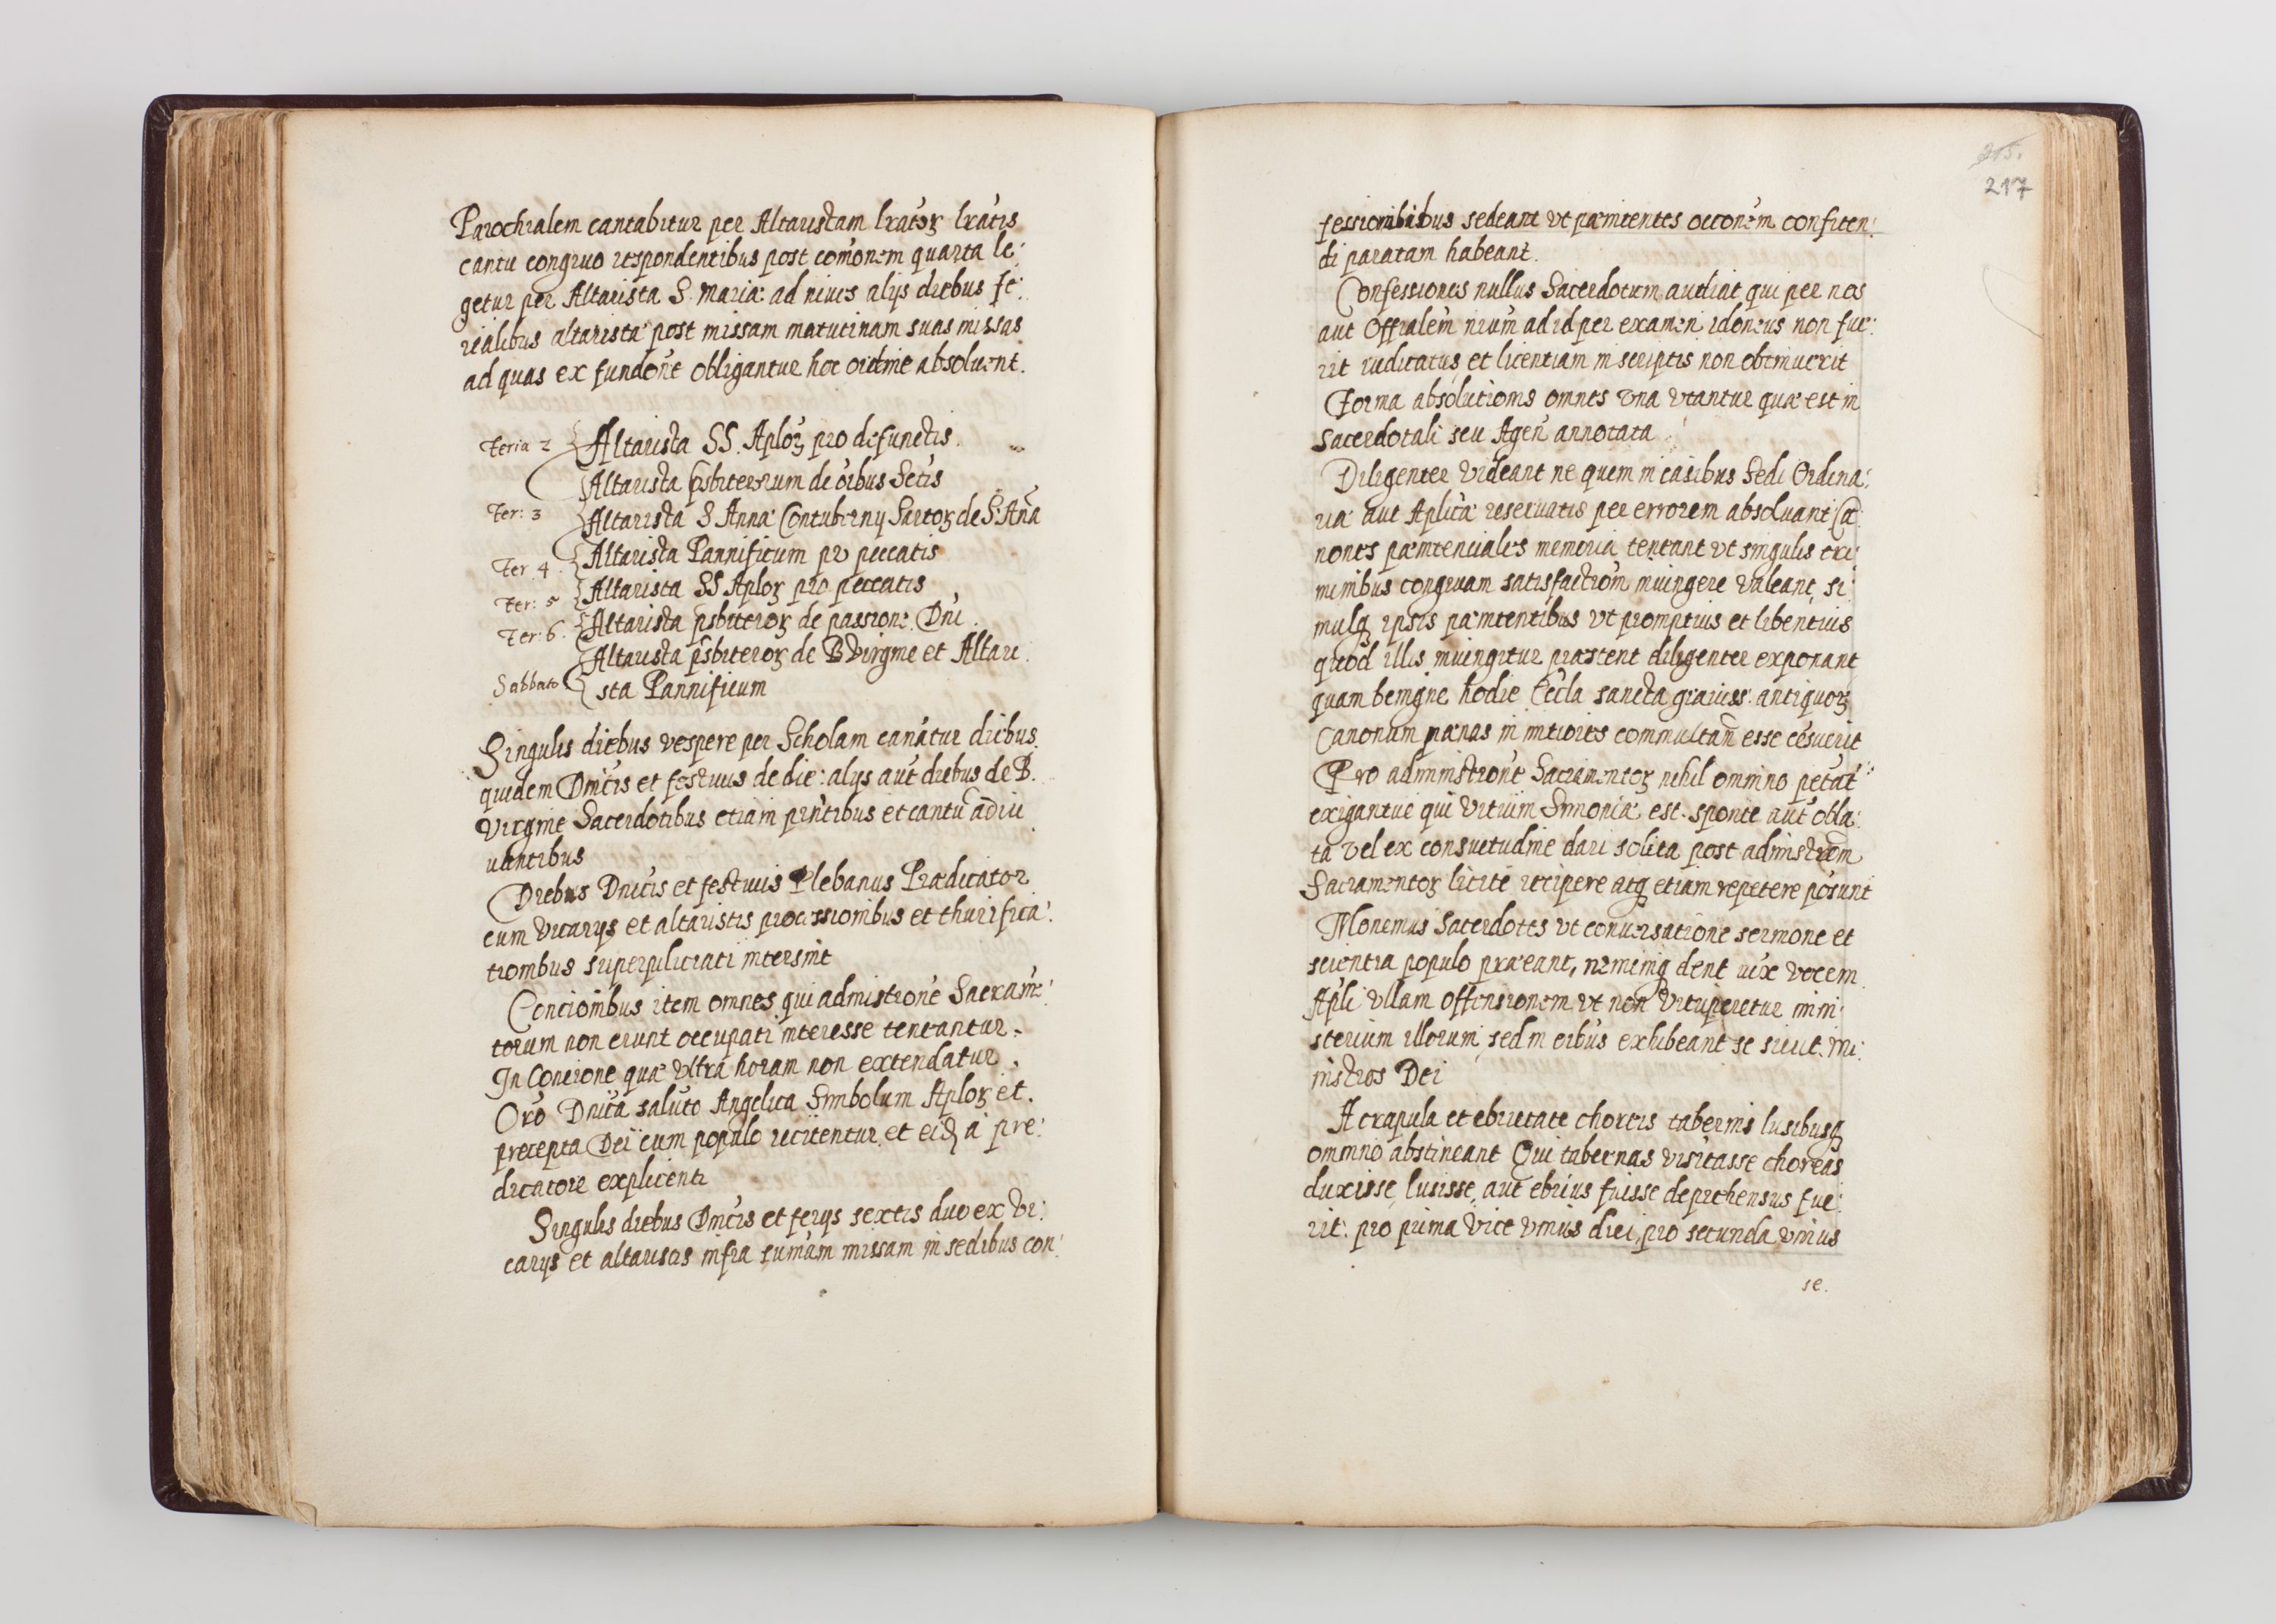 Parochialem cantabitur per Altaristam lr̃atoꝝ lr̃atis
cantu congruo respondentibus post com̃onem quarta le:
getur per Altarista S. Mariæ ad nives alijs diebus fe:
rialibus altaristæ post missam matutinam suas missas
ad quas ex fundõne obligantur hoc ordine absoluent.
Feria 2 Altarista SS. Aploꝝ pro defunctis.
Altarista p̃sbiterorum de oĩbus Sctis
Fer: 3 Altarista S Annæ Contubernij Sartoꝝ de S. Añã
Altarista Pannificum pro peccatis
Fer. 4. Altarista SS Aploꝝ pro peccatis
Fer: 5
Fer: 6. Altarista p̃sbiteroꝝ de passione Dñi
Altarista p̃sbiteroꝝ de B Virgine et Altari
Sabbato sta Pannificum
Singulis diebus vespere per Scholam canãtur diebus
quidem Dñicis et festiuis de die: alijs aũt diebus de B.
Virgine Sacerdotibus etiam pñtibus et cantũ adiu
uantibus
Diebus Dñicis et festiuis Plebanus Prædicator
cum Vicarijs et altaristis processionibus et thurifica:
tionibus superpliciati intersint
Concionibus item omnes qui admistrõne Sacrame:
torum non erunt occupati interesse teneantur.
In Concione quæ vltra horam non extendatur.
Orõ Dñica saluto Angelica Simbolum Aploꝝ et.
precepta Dei cum populo recitentur et eiꝫ a pre:
dicatore explicent
Singulis diebus Dñicis et ferijs sextis duo ex Vi:
carijs et altaristis infra sumam missam in sedibus con:
215.
217
fessionibibus sedeant vt pænitentes occõnem confiten:
di paratam habeant.
Confessiones nullus Sacerdotum audiat qui per nos
aut Offialem nrum ad id per examen idoneus non fue:
rit iudicatus et licentiam in scriptis non obtinuerit
Forma absolutionis omnes vna vtantur quæ est in
Sacerdotali seu Ageñ annotata
Diligenter Videant ne quem in casibus Sedi Ordina:
riæ aut Aplicæ reseruatis per errorem absoluant Ca
nones pænitenciales memoria teneant vt singulis cri:
minibus congruam satisfactiom iniungere valeant, si:
mulqꝫ ipsis pænitentibus vt promptius et libentius
quod illis iniungitur præstent diligenter exponant
quam benigne hodie Eccla sancta grauiss. antiquoꝝ
Canonum pænas in mitiores commultañ esse cẽsuerit
Pro administrõne Sacramentoꝝ nihil omnino petat
exigantue qui vitium Simoniæ est. sponte aũt obla:
ta vel ex consuetudine dari solita post administrõm
Sacramentoꝝ licite recipere atqꝫ etiam repetere posunt
Monemus Sacerdotes vt conuersatione sermone et
scientia populo præeant, neminiqꝫ dent iux vocem
Apli vllam offensionem vt non vituperetur mini:
sterium illorum, sed in oĩbus exhibeant se sicut. Mi:
nistros Dei
A crapula et ebrietate choreis tabernis lusibusqꝫ
omnino abstineant Qui tabernas visitasse choreas
duxisse, lusisse, aut ebrius fuisse deprehensus fue:
rit: pro prima vice vnius diei, pro secunda vnius
se.